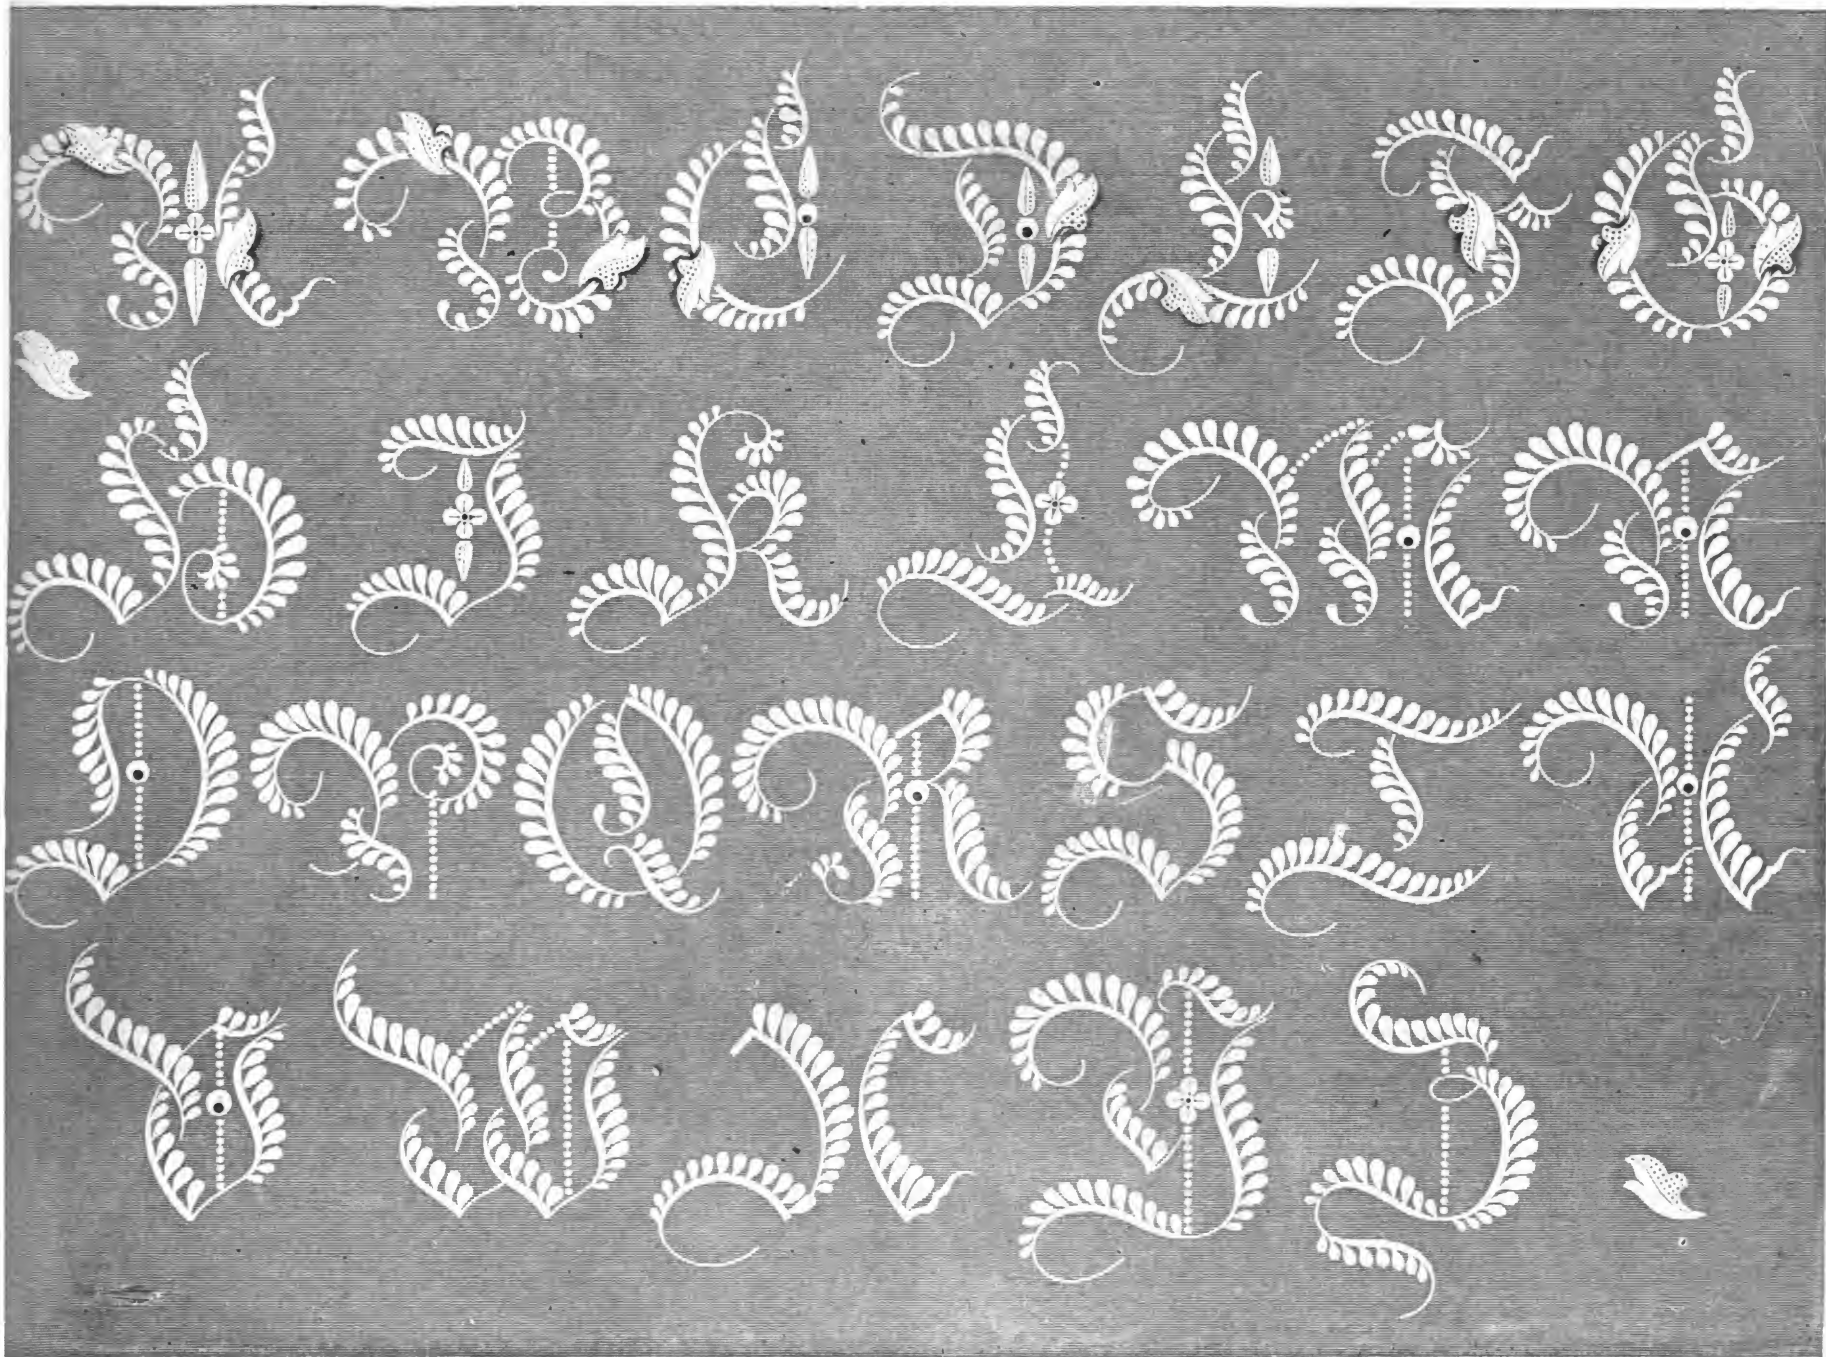 A B C D E F G
H I K L M N
O P Q R S T U
V W X Y Z